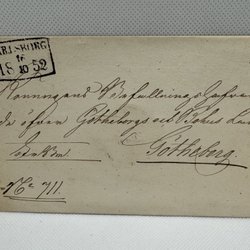 RLSBORG
16
18 10 52
Konungens Befallningshafva
öfver Götheborgs och Bohus Län
Götheborg.
No 711.